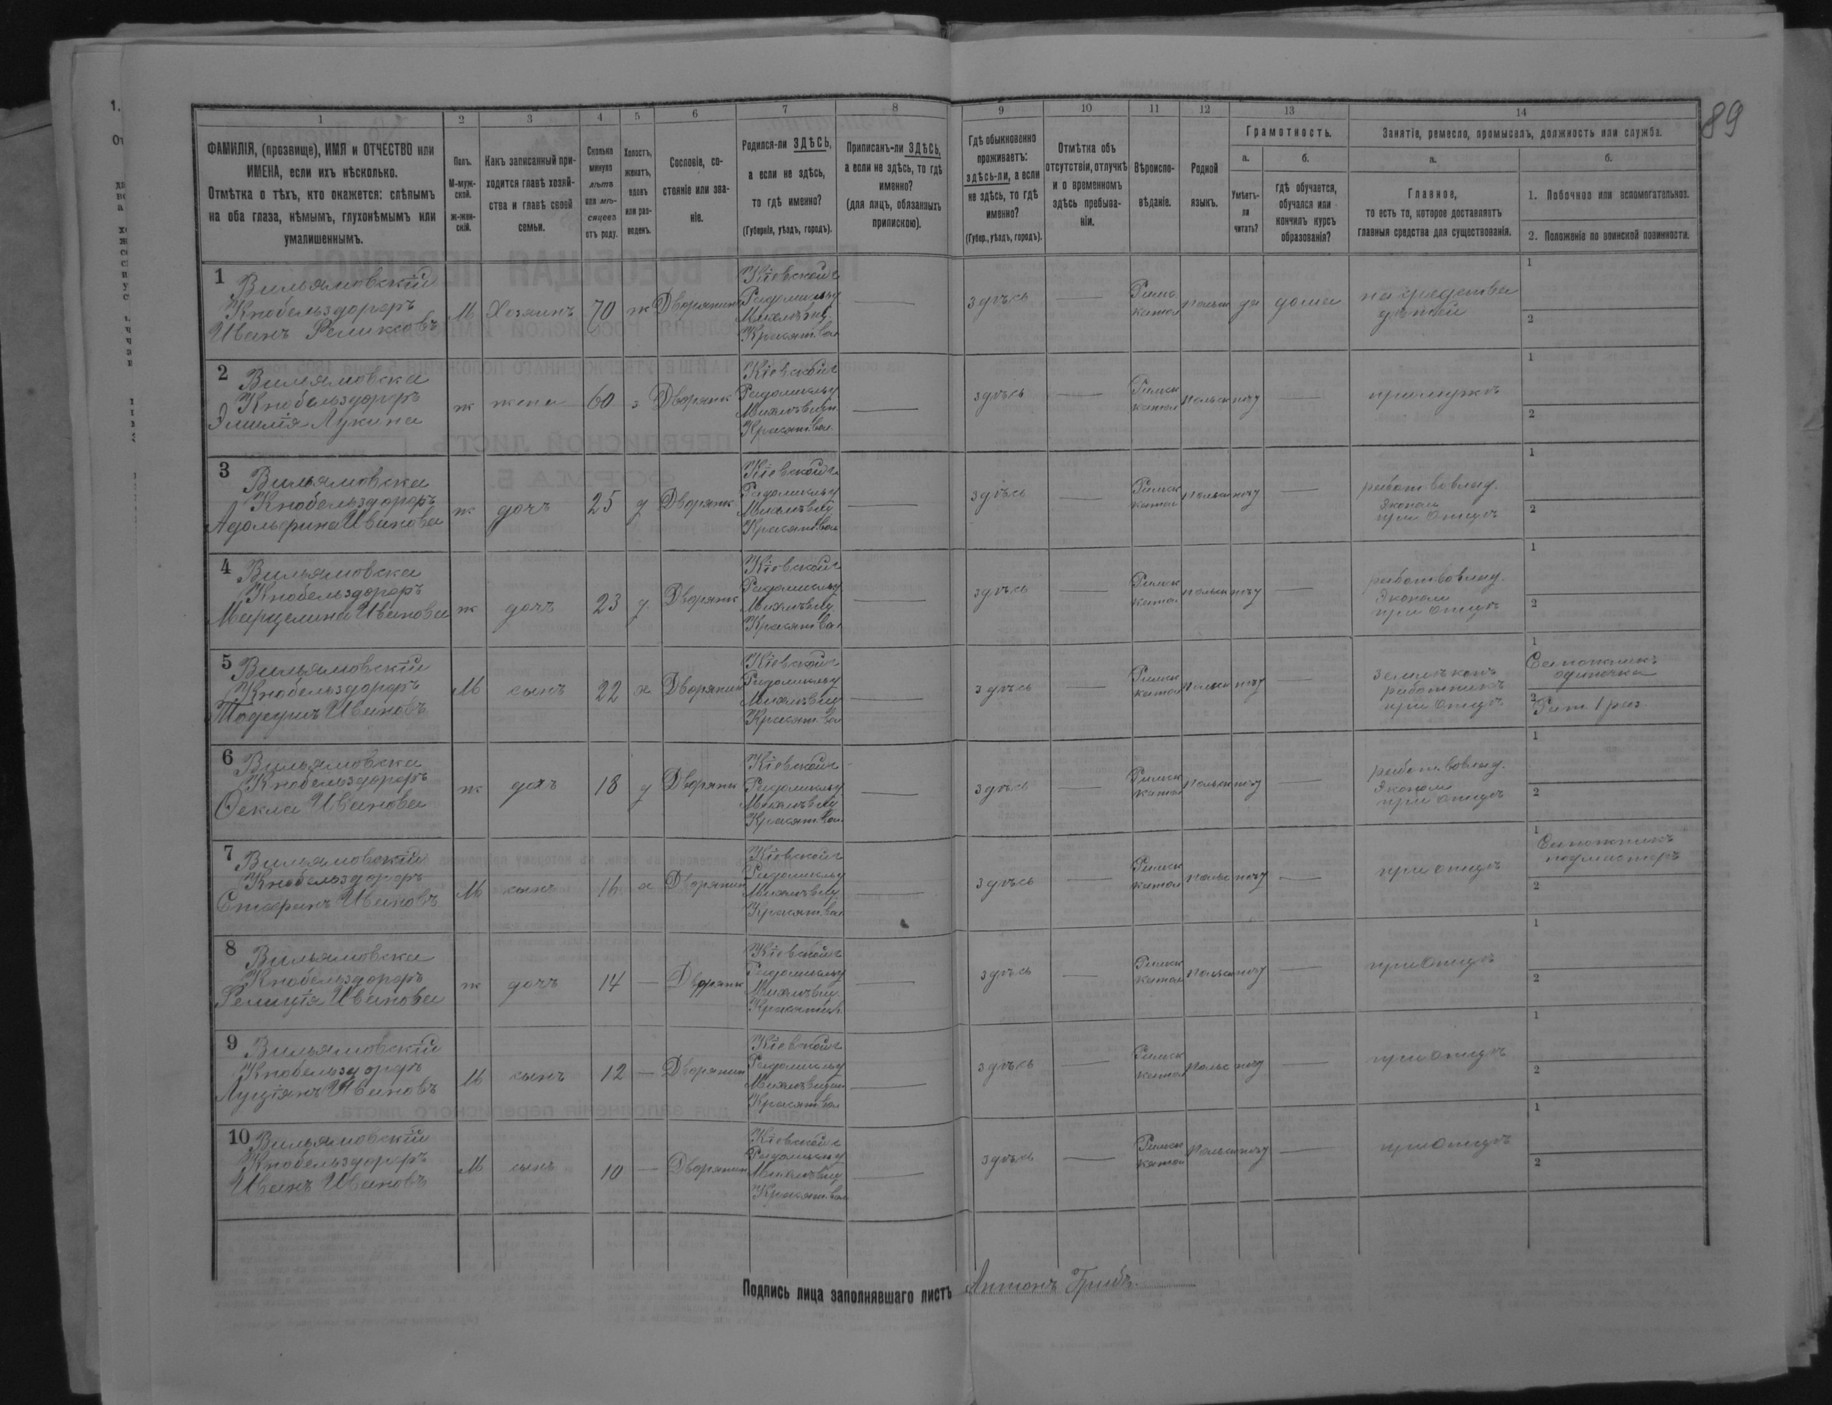 89
1 2 3 4 5 6 7 8 9 10 11 12 13 14
ФАМИЛІЯ, (прозвище), ИМЯ и ОТЧЕСТВО или
ИМЕНА, если ихъ нѣсколько.
Отмѣтка о тѣхъ, кто окажется: слѣпымъ
на оба глаза, нѣмымъ, глухонѣмымъ или
умалишеннымъ.
Полъ.
М-муж-
ской.
ж-жен-
скій.
Какъ записанный при-
ходится главѣ хозяй-
ства и главѣ своей
семьи.
Сколько
минуло
лѣтъ
или мѣ-
сяцевъ
отъ роду.
Холостъ,
женатъ,
вдовъ
или раз-
веденъ.
Сословіе, со-
стояніе или зва-
ніе.
Родился-ли ЗДѢСЬ,
а если не здѣсь,
то гдѣ именно?
(Губернія, уѣздъ, городъ).
Приписанъ-ли ЗДѢСЬ,
а если не здѣсь, то гдѣ
именно?
(для лицъ, обязанныхъ
припискою).
Гдѣ обыкновенно
проживаетъ:
здѣсь-ли, а если
не здѣсь, то гдѣ
именно?
(Губер., уѣздъ, городъ).
Отмѣтка объ
отсутствіи, отлучкѣ
и о временномъ
здѣсь пребыва-
ніи.
Вѣроиспо-
вѣданіе.
Родной
языкъ.
Грамотность.
а.
Умѣетъ-
ли
читать?
б.
гдѣ обучается,
обучался или
кончилъ курсъ
образованія?
Занятіе, ремесло, промыселъ, должность или служба.
а.
Главное,
то есть то, которое доставляетъ
главныя средства для существованія.
б.
1. Побочное или вспомогательное.
2. Положеніе по воинской повинности.
1 Вильямовскій
Кнобельздорфъ
Иванъ Феликсовъ
М Хозяинъ 70 ж Дворянинъ
Кіевской г
Радомысльу
Кра
здѣсь
Римо
катол
польск да дома
на средства
дѣтей
1
2
2 Вильямовска
Кнобельздорфъ
Эмилія Лукина
ж жена 60 з Дворянк
Кіевской г
Радомысльу
здѣсь
Римск
катол
польск нѣу
при мужѣ
1
2
3 Вильямовска
Кнобельздорфъ
Адольфина Иванова
ж дочь 25 д Дворянк
Кіевской г
Радомысльу
здѣсь
Римск
катол
польск нѣу
при отцѣ
1
2
4 Вильямовска
Кнобельздорфъ
Марцелина Иванова
ж дочь 23 д Дворянк
Кіевской г
Радомысльу
здѣсь
Римск
катол
польск нѣу
при отцѣ
1
2
5 Вильямовскій
Кнобельздорфъ
Тадеушъ Ивановъ
М сынъ 22 х Дворянин
Кіевской г
Радомысльу
здѣсь
Римск
катол
польск нѣу
работникъ
при отцѣ
1
Сапожникъ
одиночка
2
6 Вильямовска
Кнобельздорфъ
Фекла Иванова
ж дочь 18 д Дворянк
Кіевской г
Радомысльу
здѣсь
Римск
катол
польск нѣу
при отцѣ
1
2
7 Вильямовскій
Кнобельздорфъ
Стефанъ Ивановъ
М сынъ 16 х Дворянин
Кіевской г
Радомысльу
здѣсь
Римск
катол
польс нѣу
при отцѣ
1
Сапожникъ
подмастеръ
2
8 Вильямовска
Кнобельздорфъ
Фелиція Иванова
ж дочь 14 — Дворянк
Кіевской г
Радомысльу
здѣсь
Римск
катол
польск нѣу
при отцѣ
1
2
9 Вильямовскій
Кнобельздорфъ
Луціянъ Ивановъ
М сынъ 12 — Дворянин
Кіевской г
Радомысльу
здѣсь
Римск
катол
польс нѣу
при отцѣ
1
2
10 Вильямовскій
Кнобельздорфъ
Иванъ Ивановъ
М сынъ 10 — Дворянин
Кіевской г
Радомысльу
здѣсь
Римск
катол
польск нѣу
при отцѣ
1
2
Подпись лица заполнявшаго листъ Антонъ Грибъ